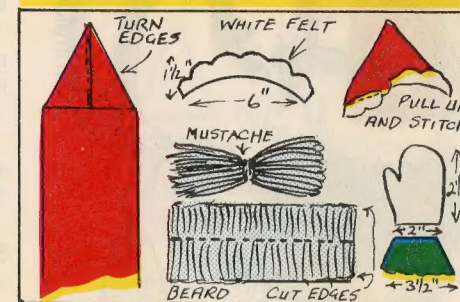 TURN
EDGES
WHITE FELT
1½"
6"
PULL UP
AND STITCH
MUSTACHE
2"
3½"
BEARD
CUT EDGES